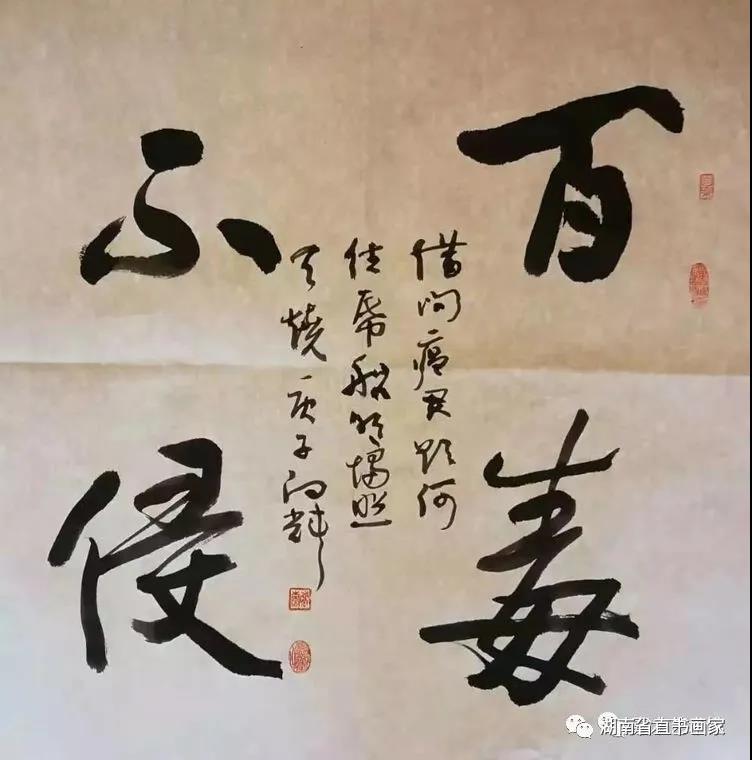 百毒
不侵
借问瘟君欲何
往纸船明烛照
天烧庚子向辉
湖南省直书画家